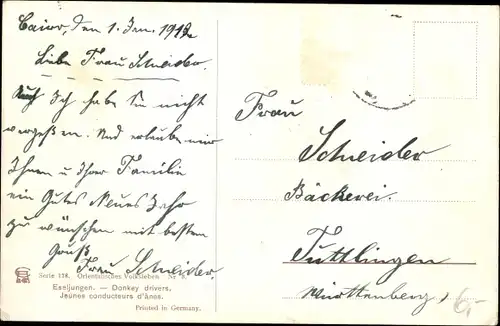 Cairo, den 1. Jan. 1912
Liebe Frau Schneider.
Auch Ich habe Sie nicht
vergeßen. Und erlaube mir
Ihnen u Ihrer Familie
ein Gutes Neues Jahr
zu wünschen mit bestem
Gruß
Frau Schneider.
Serie 128, Orientalisches Volksleben Nr 8.
Eseljungen. — Donkey drivers.
Jeunes conducteurs d'ânes.
Printed in Germany.
Frau
Schneider
Bäckerei.
Tuttlingen
Württemberg
6,-